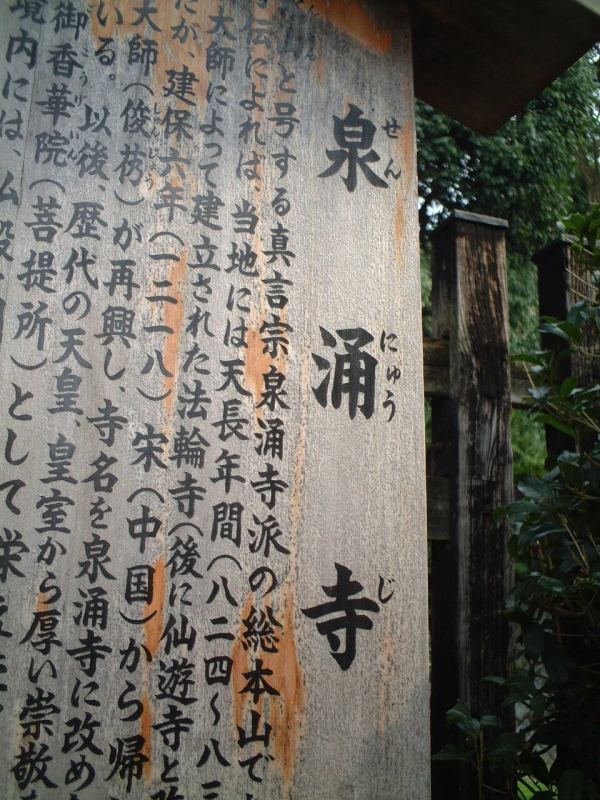 泉涌寺
せんにゅうじ
山と号する真言宗泉涌寺派の総本山で
伝によれば、当地には天長年間(八二四〜八三
大師によって建立された法輪寺(後に仙遊寺と
だが、建保六年(一二一八)宋(中国)から帰
大師(俊芿)が再興し、寺名を泉涌寺に改め
いる。以後、歴代の天皇、皇室から厚い崇敬を
御香華院(菩提所)として栄
境内には、仏殿